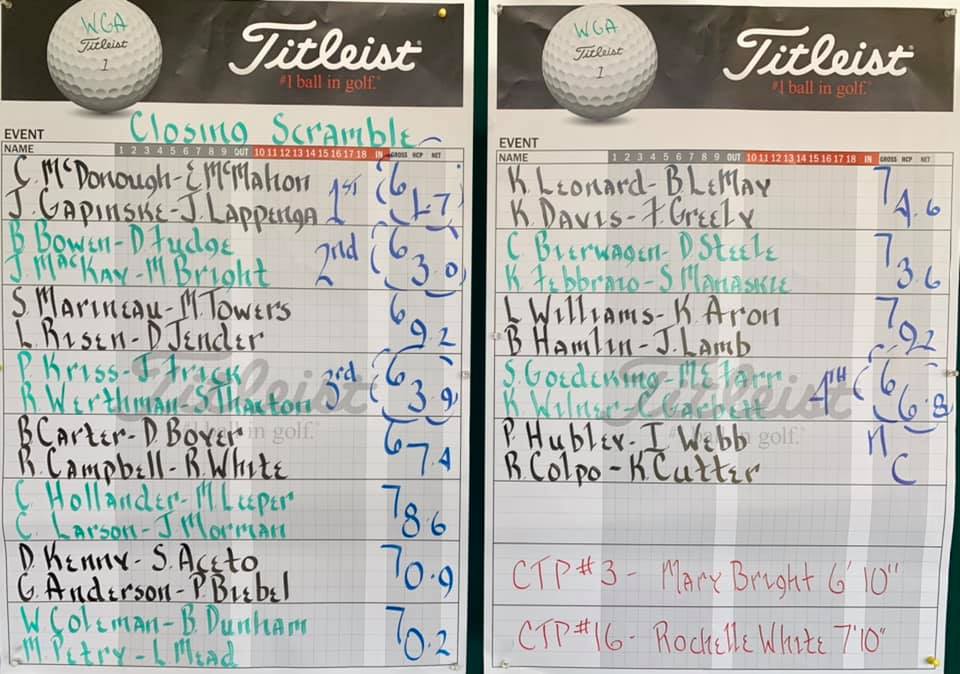 WGA
Titleist
1
Titleist
#1 ball in golf.
EVENT Closing Scramble
NAME 1 2 3 4 5 6 7 8 9 OUT 10 11 12 13 14 15 16 17 18 IN GROSS HCP NET
C. McDonough - E McMahon
J. Gapinske - J. Lappenga 1st 61.7
B Bowen - D Fudge
J. MacKay - M. Bright 2nd 63.0
S. Marineau - M. Towers
L Risen - D Jender 69.2
P. Kriss - J. Frick
R. Werthman - S. Thaeton 3rd 63.9
B Carter - D. Boyer
R. Campbell - R. White 67.4
C. Hollander - M. Leeper
C. Larson - J Morman 78.6
D. Kenny - S. Aceto
G. Anderson - P. Biebel 70.9
W Coleman - B. Dunham
M. Petry - L Mead 70.2
WGA
Titleist
1
Titleist
#1 ball in golf.
EVENT
NAME 1 2 3 4 5 6 7 8 9 OUT 10 11 12 13 14 15 16 17 18 IN GROSS HCP NET
K. Leonard - B. LeMay
K. Davis - F. Greely 74.6
C Bierwagen - D Steele
K Febbraio - S Manaskie 73.6
L Williams - K. Aron
B Hamlin - J. Lamb 792
S. Goedeking - M E Farr
K. Wilner - C Garbett 4TH 66.8
P. Hubley - I. Webb
R. Colpo - K. Cutter NC
CTP #3 - Mary Bright 6' 10"
CTP #16 - Rochelle White 7'10"